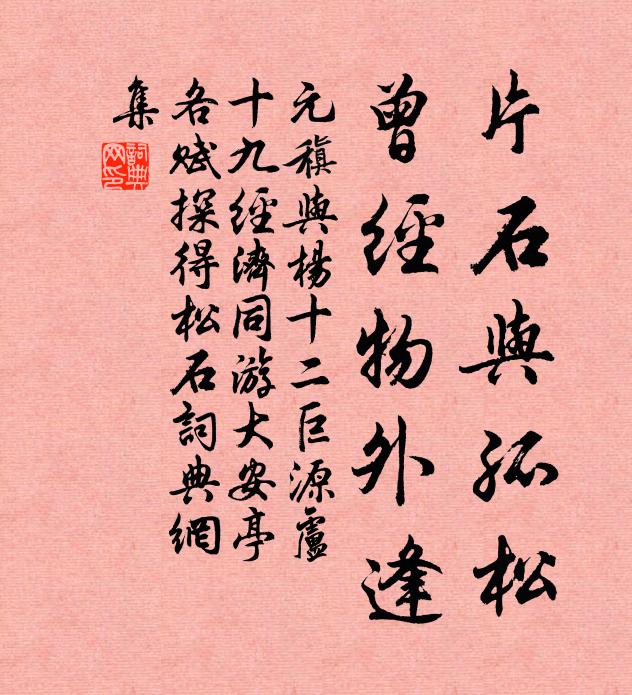 片石與孤松
曾經物外逢
元稹與楊十二巨源盧
十九經濟同游大安亭
各賦探得松石詞典網
集
詞典
网印